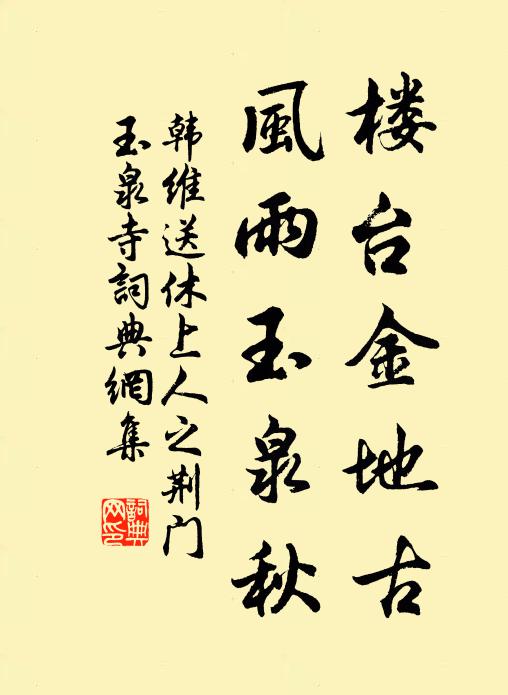 楼台金地古
風雨玉泉秋
韩維送休上人之荆门
玉泉寺詞典網集
詞典网印